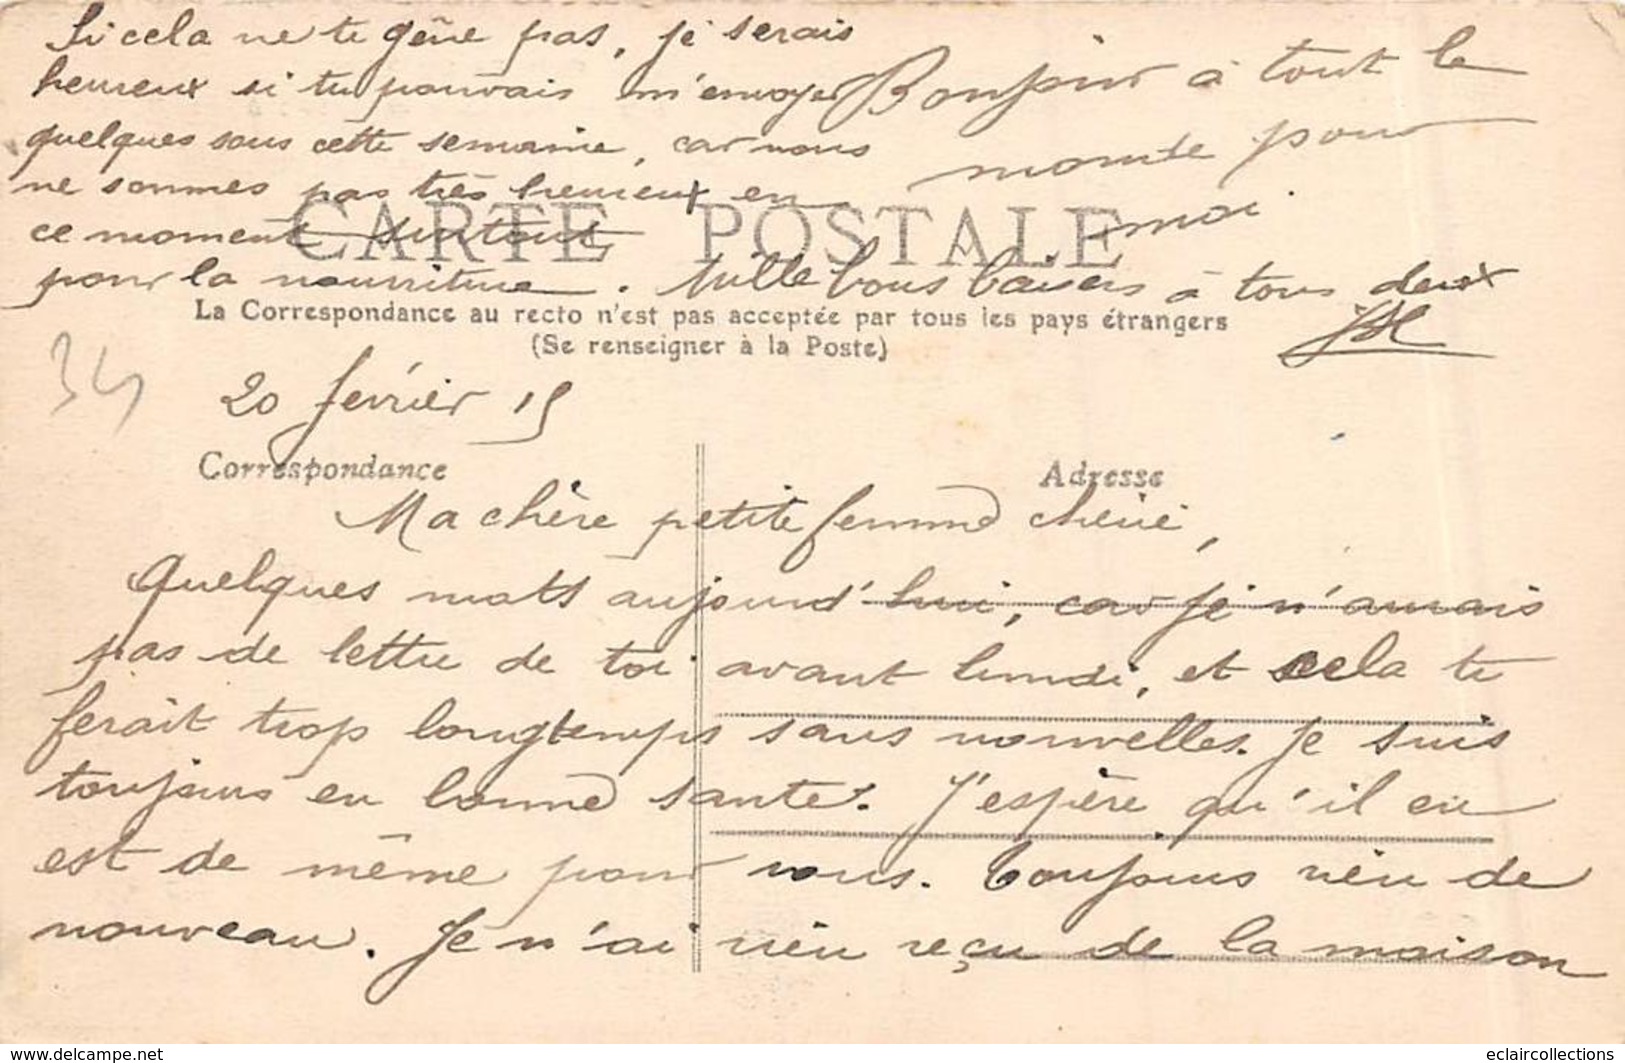 Si cela ne te gêne pas, je serais
heureux si tu pouvais m'envoyer
quelques sous cette semaine, car nous
ne sommes pas très heureux en
ce moment surtout
pour la nourriture. Mille bons baisers à tous deux
Bonjour à tout le
monde pour
moi
CARTE POSTALE
La Correspondance au recto n'est pas acceptée par tous les pays étrangers
(Se renseigner à la Poste)
34
20 février 15
Correspondance
Adresse
Ma chère petite femme chérie,
Quelques mots aujourd'hui, car je n'aurais
pas de lettre de toi avant lundi, et cela te
ferait trop longtemps sans nouvelles. Je suis
toujours en bonne santé. J'espère qu'il en
est de même pour vous. Toujours rien de
nouveau. Je n'ai rien reçu de la maison
www.delcampe.net
eclaircollections